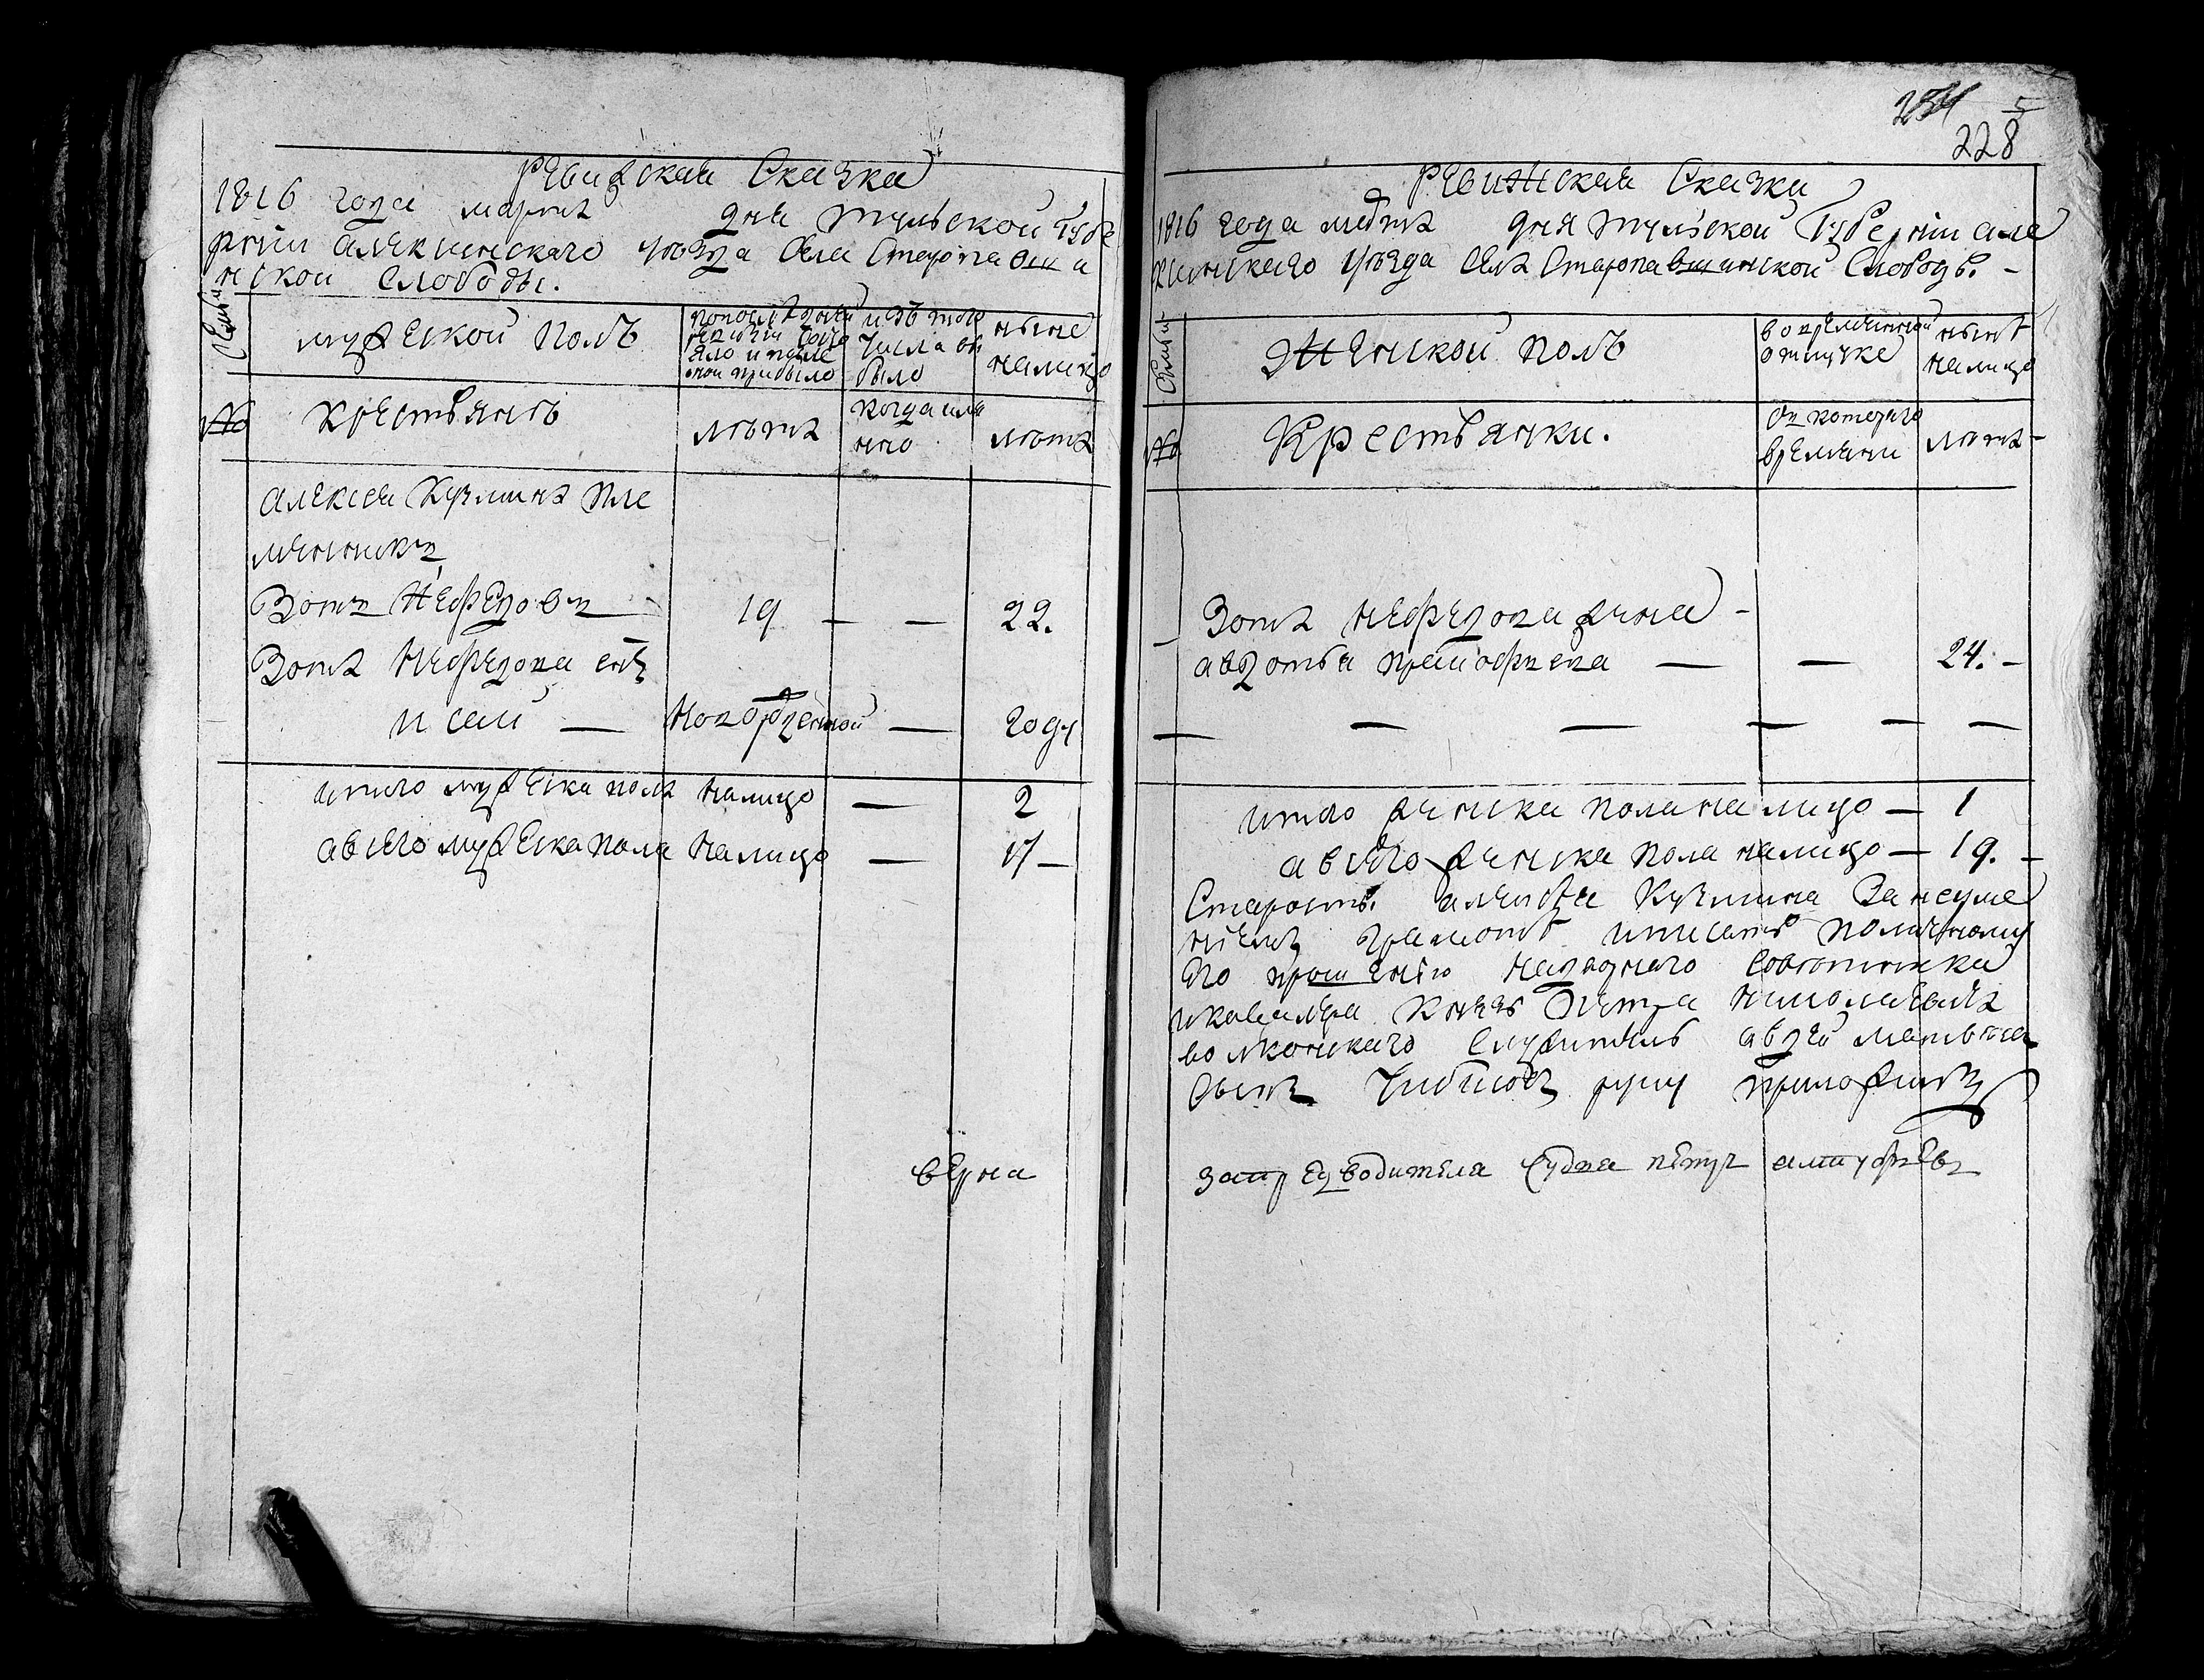 Ревижская Сказка
1816 года марта дня тульской губе
рнии алексинскаго уѣзда села Старопавши
нской слободы.
Семьи
мужеской полъ
по послѣдней ревизіи состояло и после оной прибыло
изъ того числа выбыло
ныне налицо
№
крестьянъ
лѣта
когда имянно
лѣта
алексея Кузмина пле
менникъ
Зотъ Нефедовъ 19 — — 22.
Зота Нефедова сынъ
исай — новорожденной — году
итого мужеска пола налицо — 2
а всего мужеска пола налицо — 17 —
верна
234 5
228
Ревижская Сказка
1816 года марта дня тульской Губернии але
ксинскаго уѣзда села Старопавшинской Слободы. —
Семьи
женской полъ
во временной отлучке
нынѣ налицо
№
Крестьянки.
съ котораго времяни
лѣта —
Зота нефедова жена —
авдотья — — 24. —
— — — — — —
итого женска пола на лицо — 1
а всего женска пола налицо — 19. —
Старосты алексѣя Кузмина За неуме
ниемъ грамотѣ и писать по личному
Его прошению надворнаго Советника
и кавалера Князь Петра николаевича
волконскаго служитель авдей матвѣевъ
Сынъ руку приложилъ
за предводителя Судья петръ алтуфьевъ